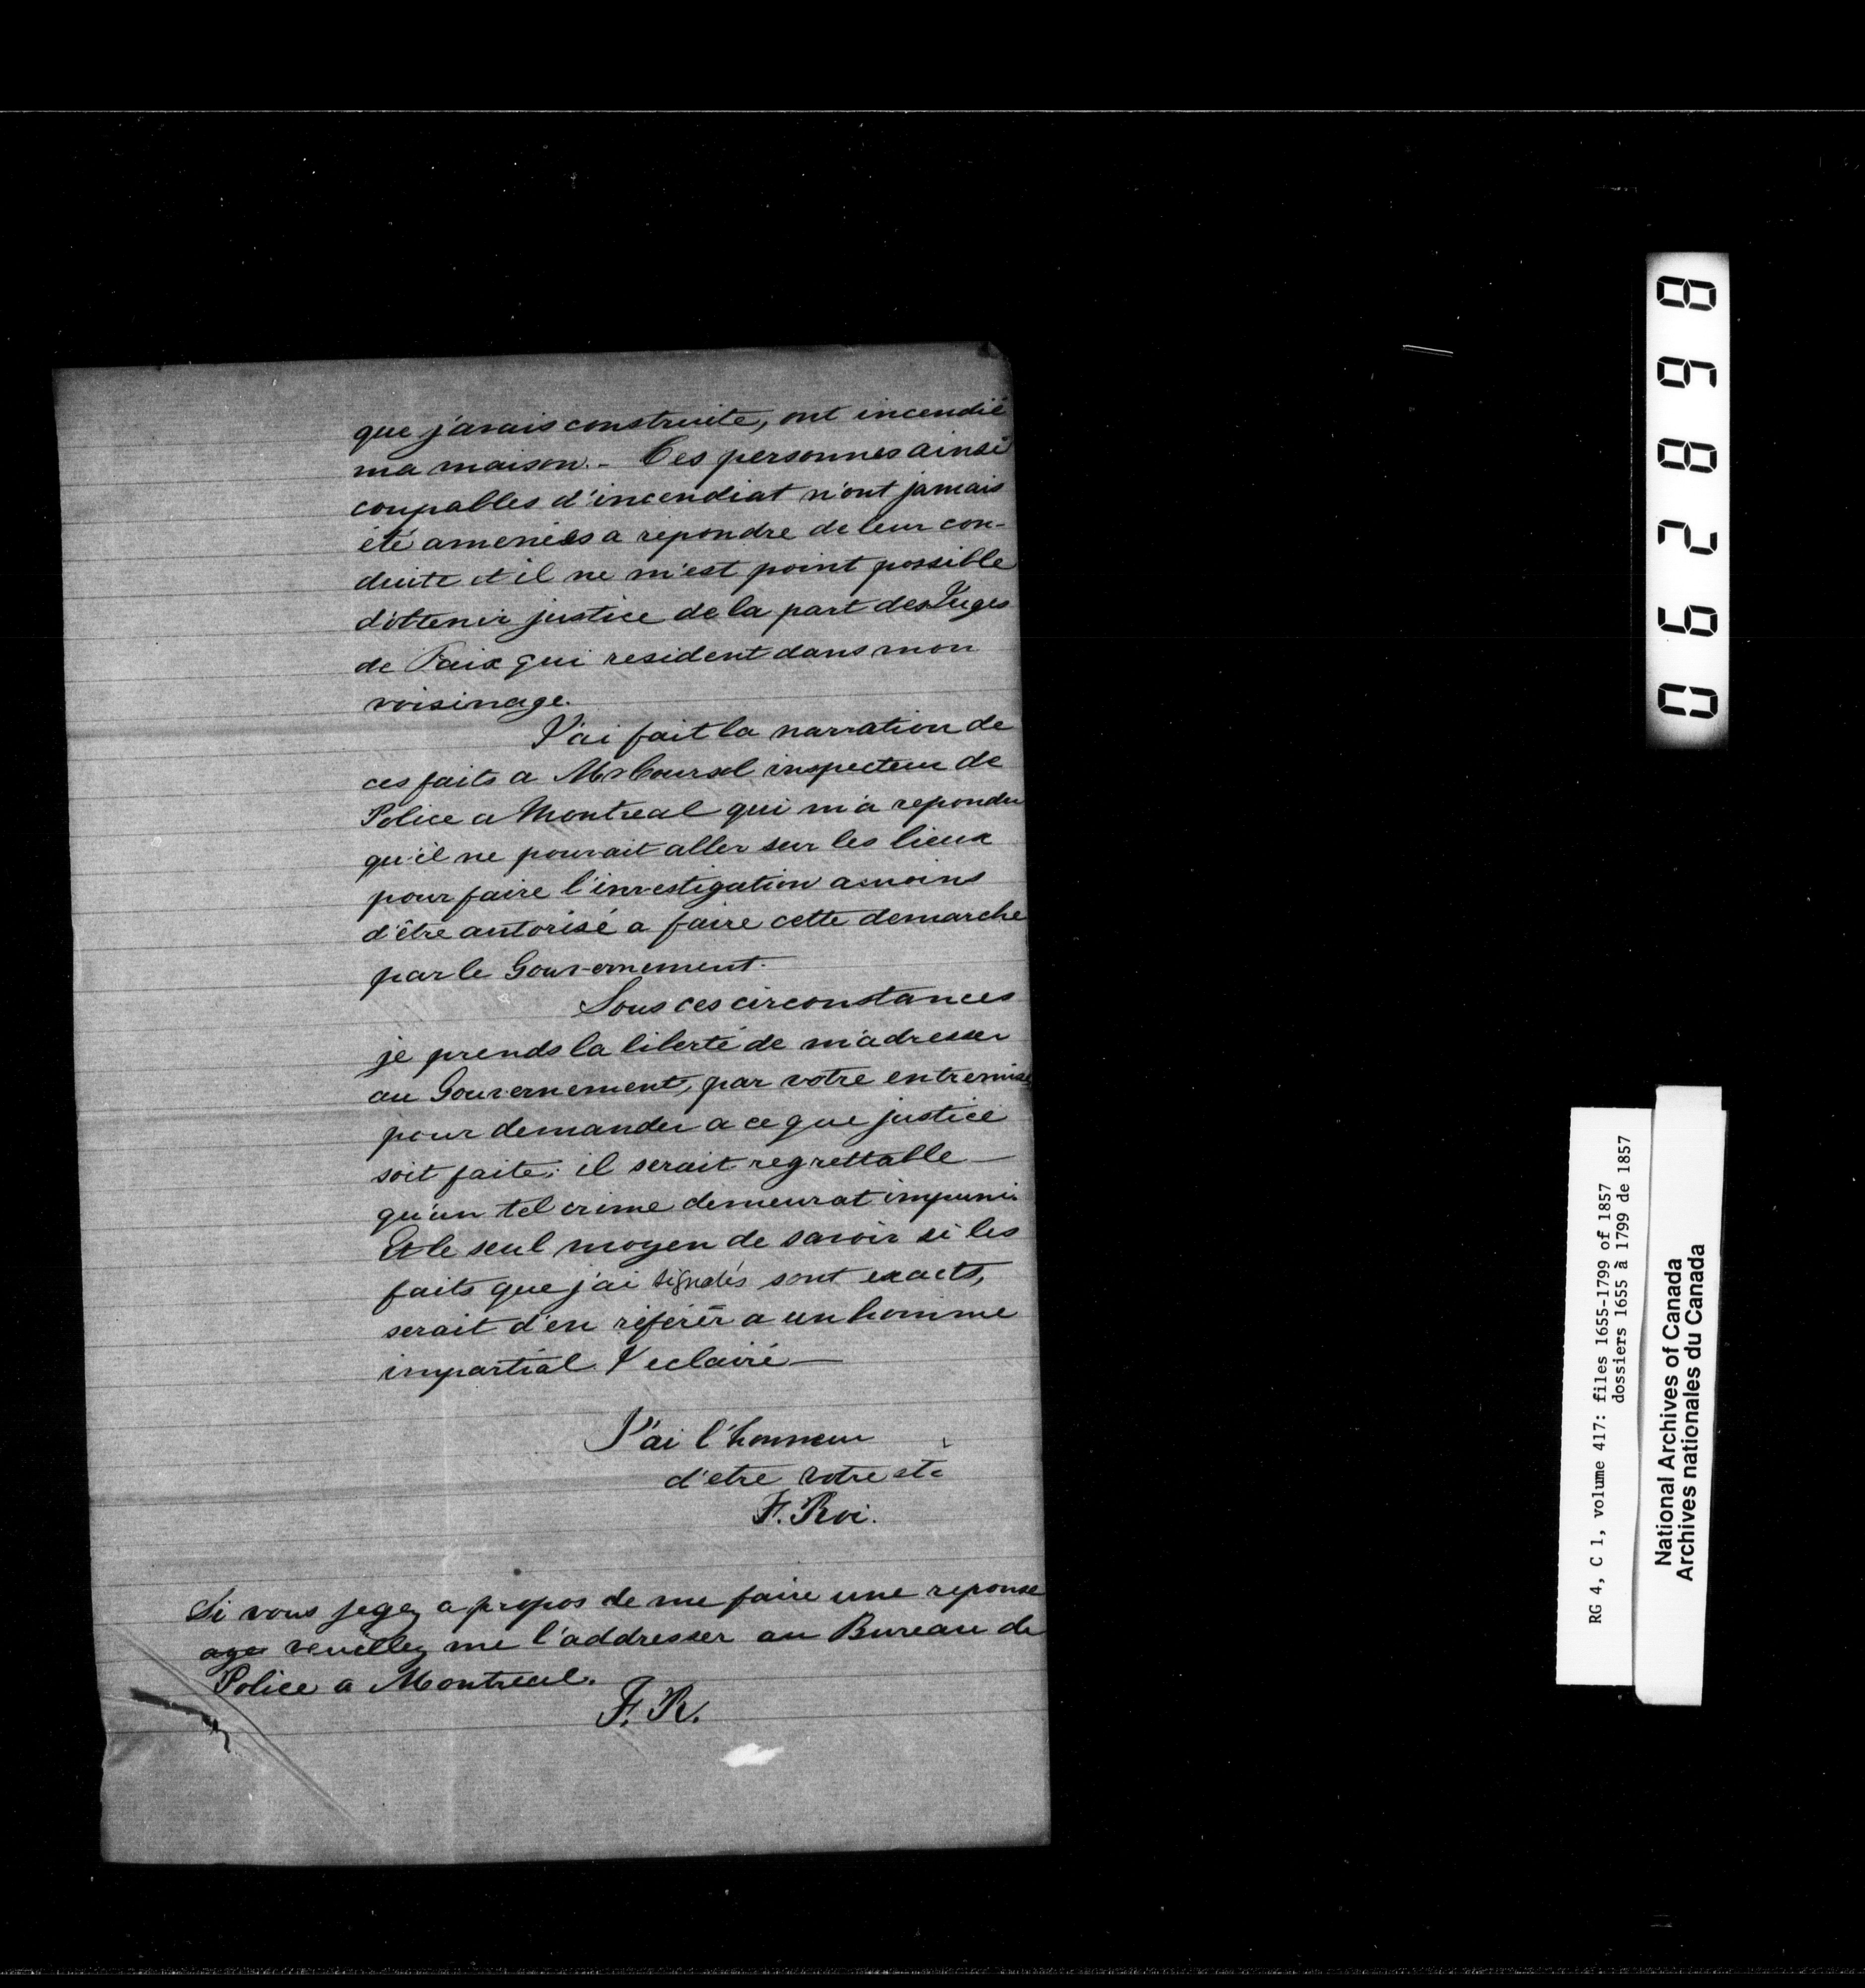 que j'avais construite, ont incendié
ma maison. - Ces personnes ainsi
coupables d'incendiat n'ont jamais
été amenées a repondre de leur con-
duite et il ne m'est point possible
d'obtenir justice de la part des Juges
de Paix qui resident dans mon
voisinage.
J'ai fait la narration de
ces faits a Mr Coursol inspecteur de
Police a Montreal qui m'a repondu
qu'il ne pouvait aller sur les lieux
pour faire l'investigation a moins
d'être autorisé a faire cette demarche
par le Gouvernement.
Sous ces circonstances
je prends la liberté de m'adresser
au Gouvernement, par votre entremise
pour demander a ce que justice
soit faite; il serait regrettable —
qu'un tel crime demeurat impuni.
Et le seul moyen de savoir si les
faits que j'ai signalés sont exacts,
serait d'en référer a un homme
impartial & eclairé —
J'ai l'honneur
d'etre votre etc
F. Roi.
Si vous jugez a propos de me faire une reponse
veuillez me l'addresser au Bureau de
Police a Montreal.
F. R.
062898
RG 4, C 1, volume 417: files 1655-1799 of 1857
dossiers 1655 à 1799 de 1857
National Archives of Canada
Archives nationales du Canada